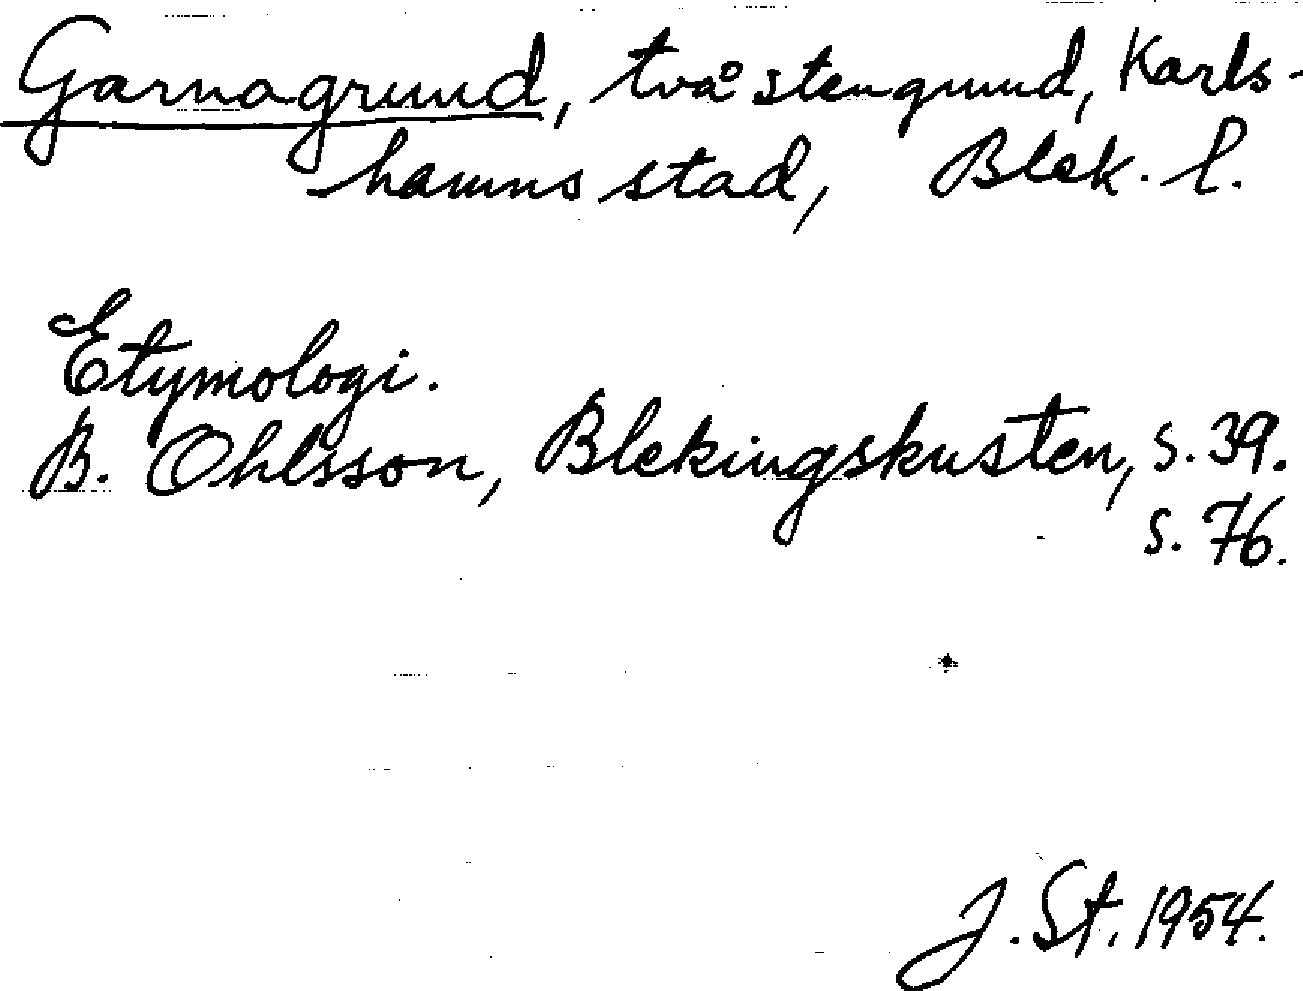 Garnagrund, två stengrund, Karls-
hamns stad, Blek. l.
Etymologi.
B. Ohlsson, Blekingskusten, s. 39.
s. 76.
J. St. 1954.